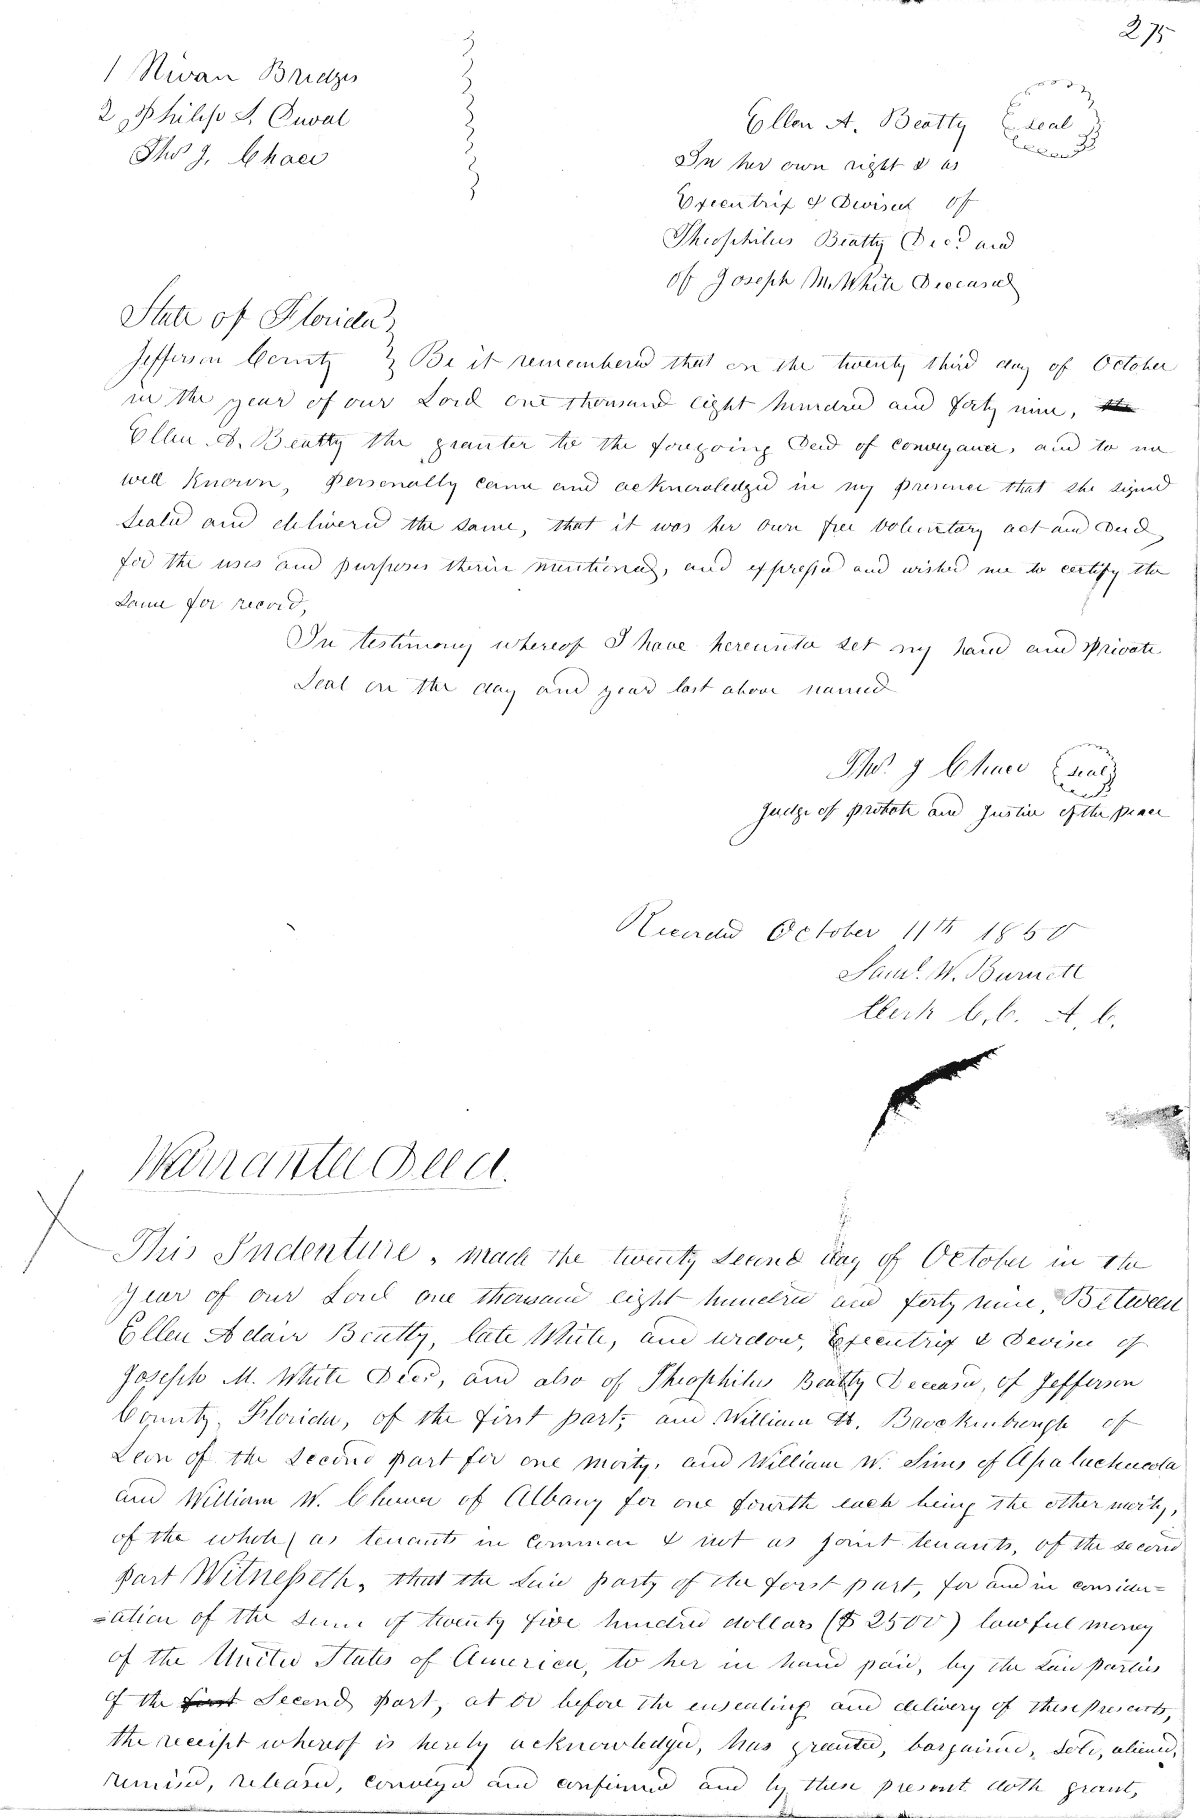 275
1 Nivan Bridges
2 Philip S. Duval
Thos J. Chace
Ellen A. Beatty seal
In her own right & as
Executrix & Devisee of
Theophilus Beatty Decd and
of Joseph M. White Deceased
State of Florida
Jefferson County } Be it remembered that on the twenty third day of October
in the year of our Lord one thousand eight hundred and forty nine, the
Ellen A. Beatty the granter to the foregoing Deed of conveyance, and to me
well known, personally came and acknowledged in my presence that she signed
sealed and delivered the same, that it was her own free voluntary act and Deed,
for the uses and purposes therin mentioned, and expressed and wished me to certify the
same for record,
In testimony whereof I have hereunto set my hand and private
seal on the day and year last above named
Thos J Chace seal
Judge of probate and Justice of the peace
Recorded October 11th 1850
Saml. W. Burnett
Clerk C. C. A. C.
Warrantee Deed.
This Indenture, made the twenty second day of October in the
year of our Lord one thousand eight hundred and forty nine, Between
Ellen Adair Beatty, late White, and widow, Executrix & Devisee of
Joseph M. White Decd, and also of Theophilus Beatty Deceased, of Jefferson
County, Florida, of the first part; and William H. Brockenbrough of
Leon of the second part for one moity, and William W. Sims of Apaluchucola
and William W. of Albany for one fourth each being the other moity,
of the whole (as tenants in common & not as joint tenants, of the second
part Witnesseth, that the said party of the first part, for and in consider=
=ation of the sum of twenty five hundred dollars ($2500) lawful money
of the United States of America, to her in hand paid, by the said parties
of the first Second part, at or before the ensealing and delivery of these presents,
the receipt whereof is hereby acknowledged, has granted, bargained, sold, aliened,
remised, released, conveyed and confirmed and by these present doth grant,